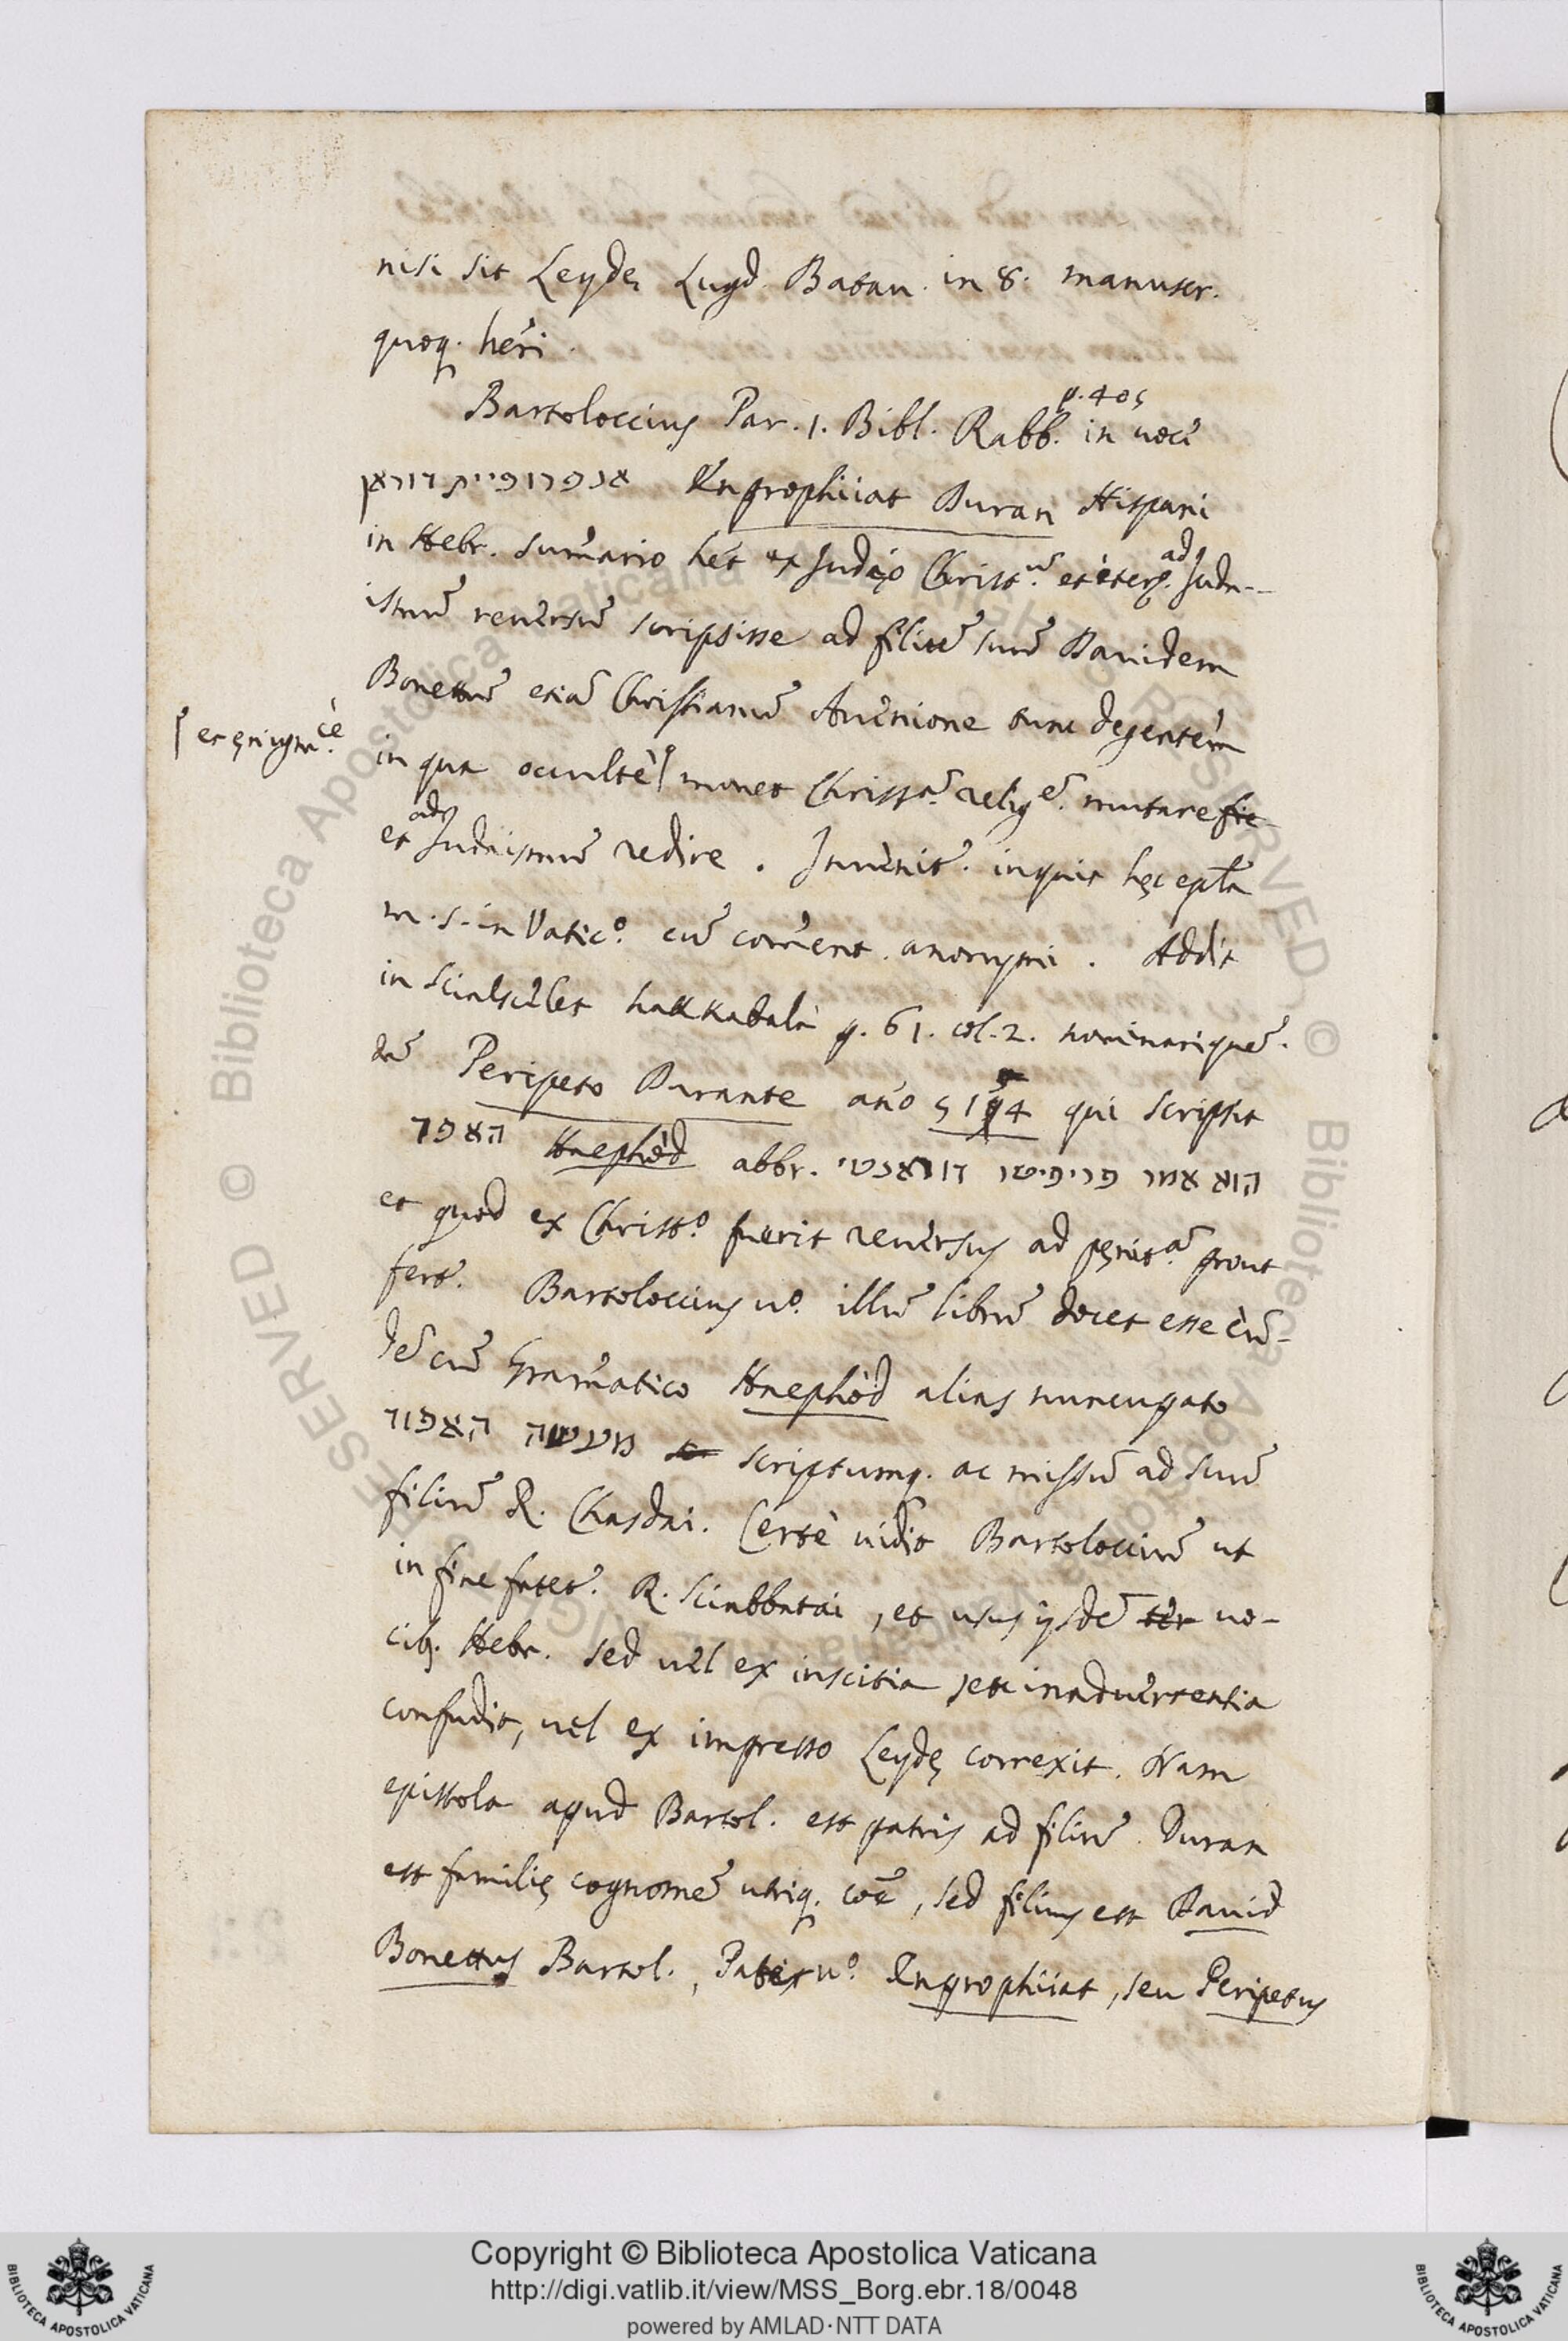 nisi sit Leydę Lugd. Batau. in 8. manuscr.
quoq. hẽri.
p. 405
Bartoloccius Par. 1. Bibl. Rabb. in uocẽ
אנפרופיית דוראן Enprophiiat Duran Hispani
in Hebr. sum̃ario hét ex Judęo Christ.ũ et iterũ ad Juda-
ismũ reuersũ scripsisse ad filiũ suũ Dauidem
Bonettũ etiã Christianũ Auenione tunc degentem
et ęnigm.cè
in qua occultè monet Christ.ã relig.ẽ mutare
et ad Judaismũ redire. Inuenit.r inquit hęc ep̃la
m.s. in Vatic.o cũ com̃ent. anonymi. Addit
in Scialscelet hakkabalà p. 61. col. 2. nominari quẽ-
dã Peripeto Durante año 5154 qui scripsit
האפד Haephòd abbr. הוא אמר פריפיטו דוראנטי
et quod ex Christ.o fuerit reuersus ad pęnit.ã prout
fert.r Bartoloccius u.o illũ librũ docet esse eũ-
dẽ cũ Gram̃atico Haephòd alias nuncupato
מעשה האפוד scriptumq. ac missũ ad suũ
filiũ R. Chasdai. Certè uidit Bartolocciũ ut
in fine fatet.r R. Sciabbatai, et usus ijsdẽ uo-
cib. Hebr. sed uel ex inscitia seu inaduertentia
confudit, uel ex impresso Leydę correxit. Nam
epistola apud Bartol. est patris ad filiũ. Duran
est familię cognomẽ utriq. coẽ, sed filius est Dauid
Bonettus Bartol., Pater u.o Enprophiiat, seu Peripetus
© Biblioteca Apostolica Vaticana
Copyright © Biblioteca Apostolica Vaticana
http://digi.vatlib.it/view/MSS_Borg.ebr.18/0048
powered by AMLAD·NTT DATA
BIBLIOTECA APOSTOLICA VATICANA
BIBLIOTECA APOSTOLICA VATICANA